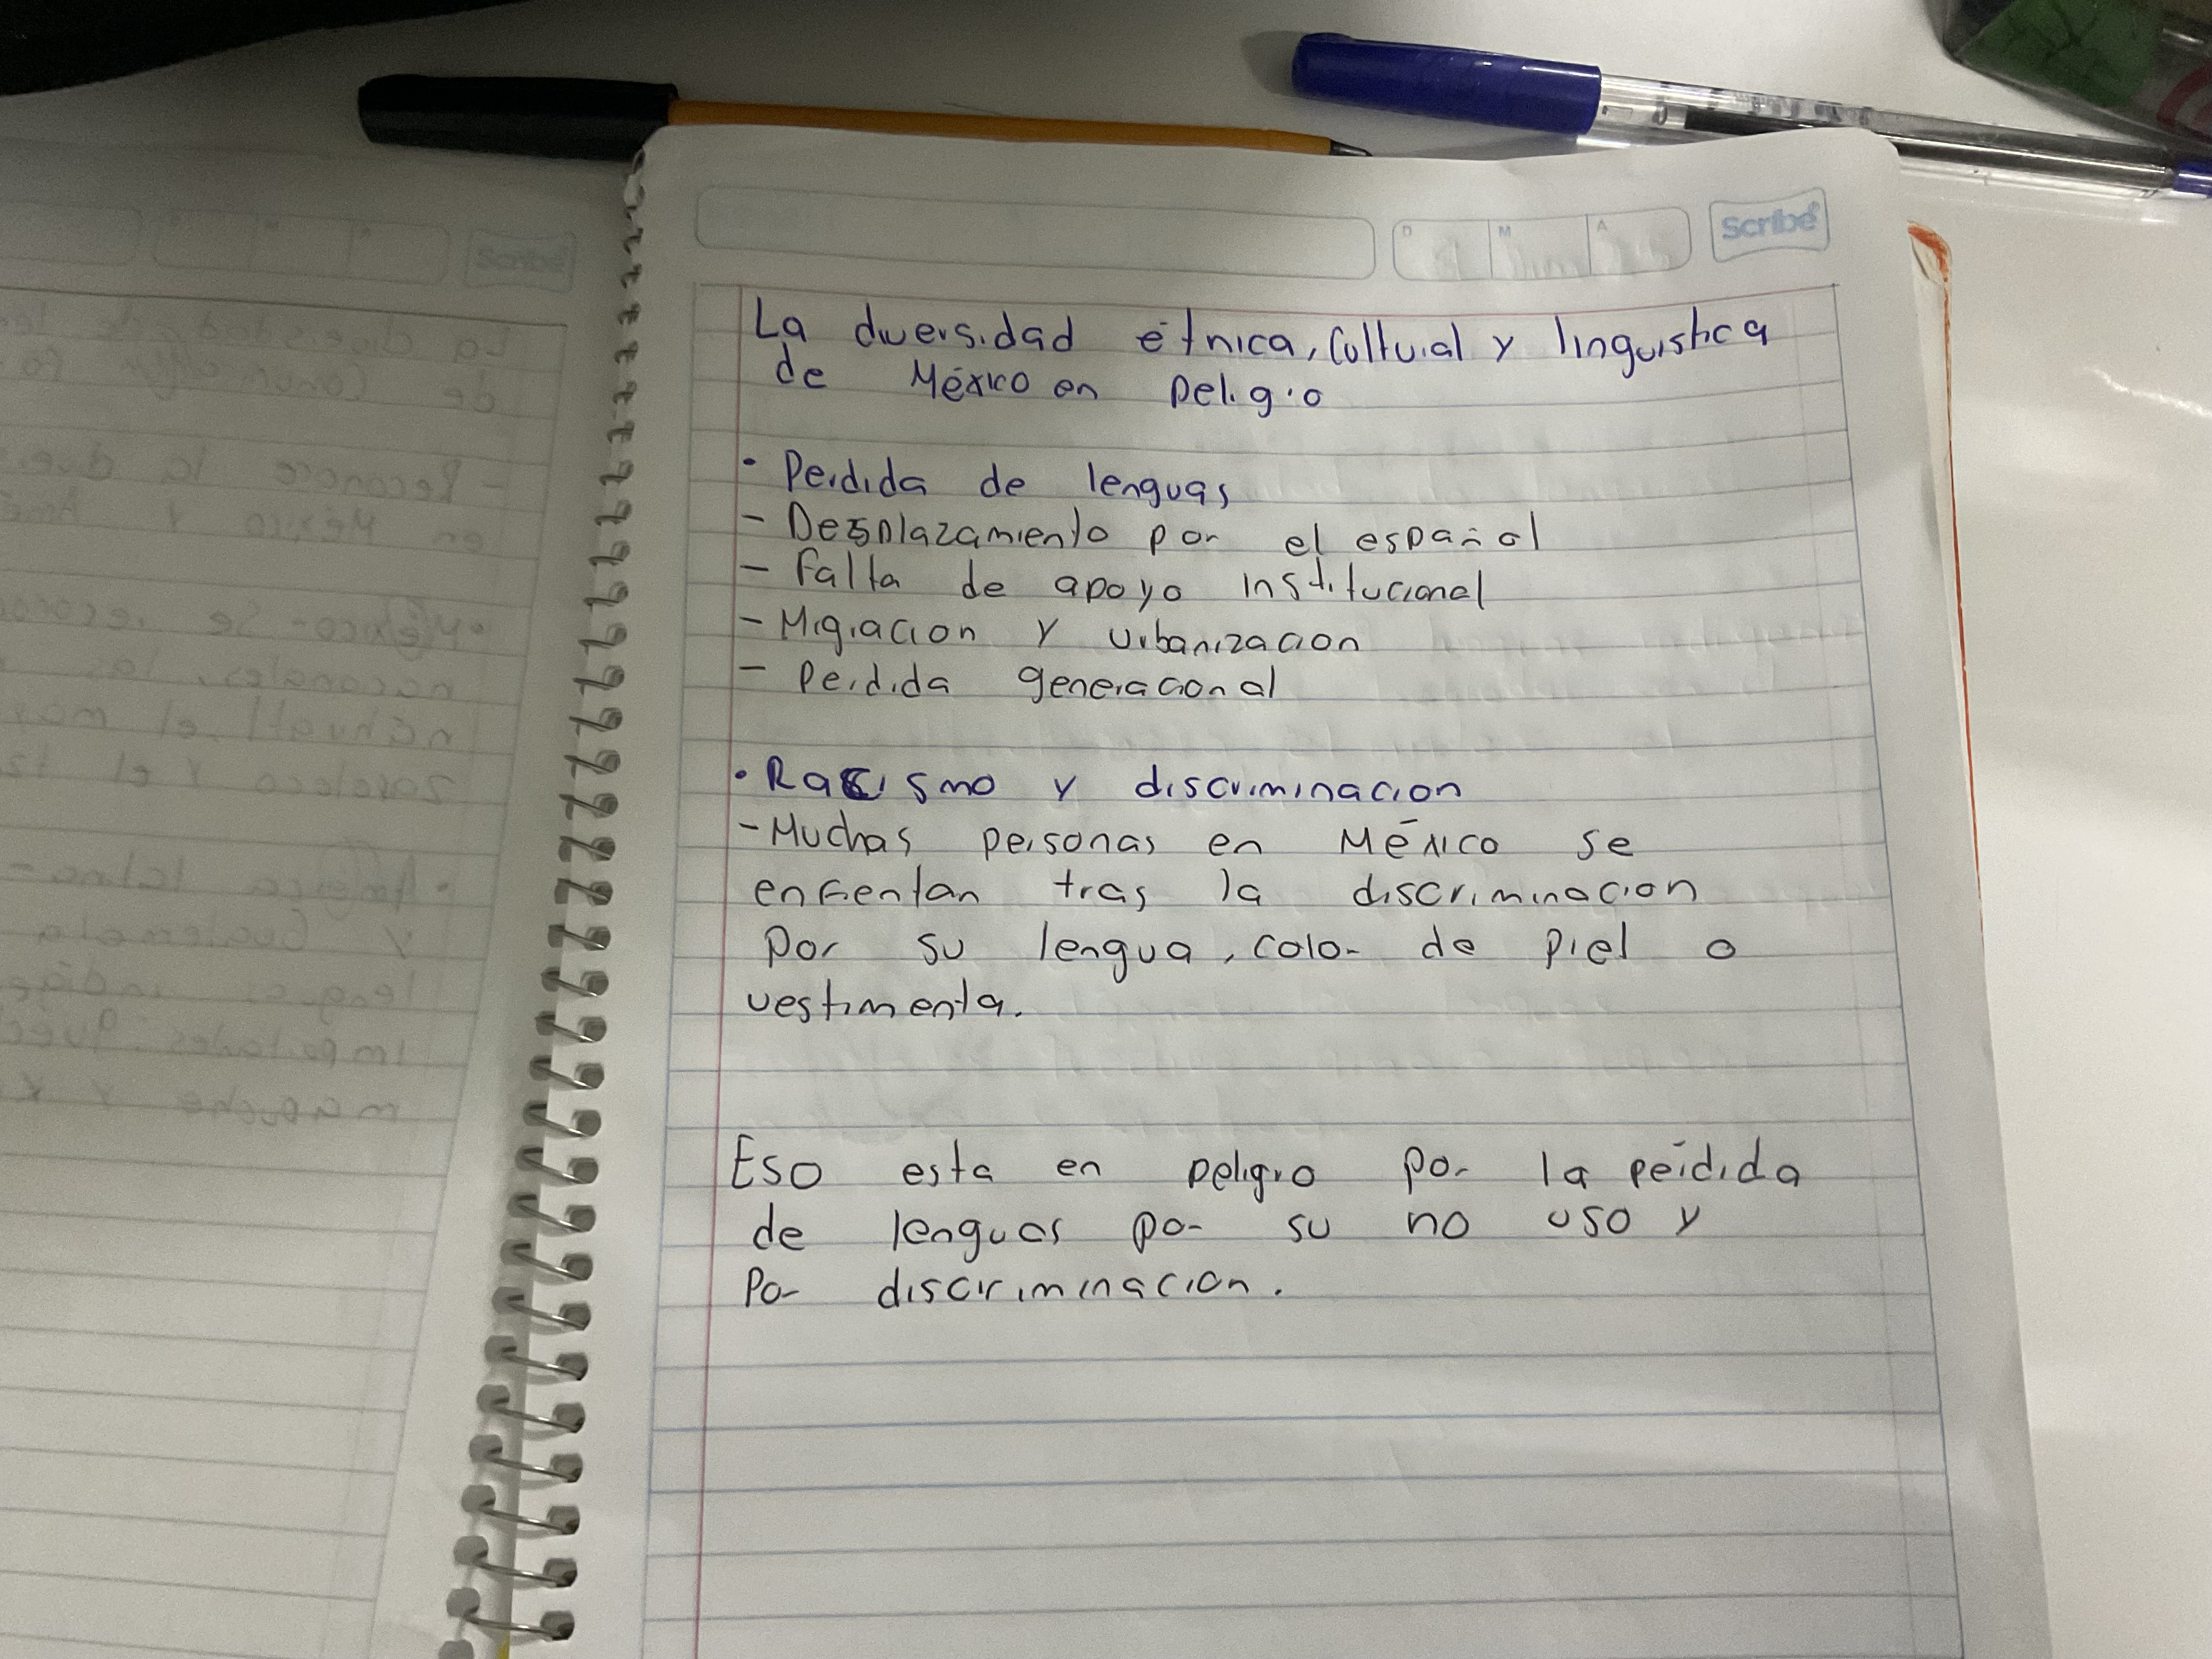 Scribe
D M A
La diversidad étnica, Cultural y linguistica
de México en peligro
• Perdida de lenguas
- Desplazamiento por el español
- Falta de apoyo institucional
- Migracion y urbanizacion
- Perdida generacional
• Racismo y discriminacion
- Muchas personas en México se
enfrentan tras la discriminacion
por su lengua, color de piel o
vestimenta.
Eso esta en peligro por la pérdida
de lenguas por su no uso y
por discriminacion.